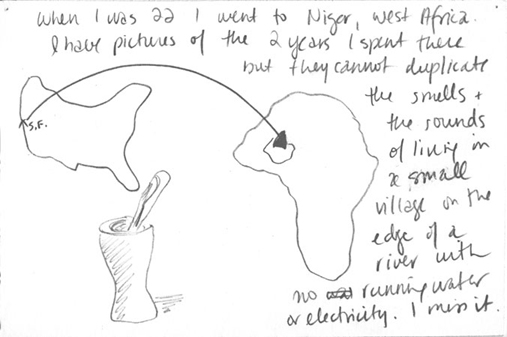 When I was 22 I went to Niger, West Africa.
I have pictures of the 2 years I spent there
but they cannot duplicate
the smells +
the sounds
of living in
a small
village on the
edge of a
river with
no running water
or electricity. I miss it.
S.F.